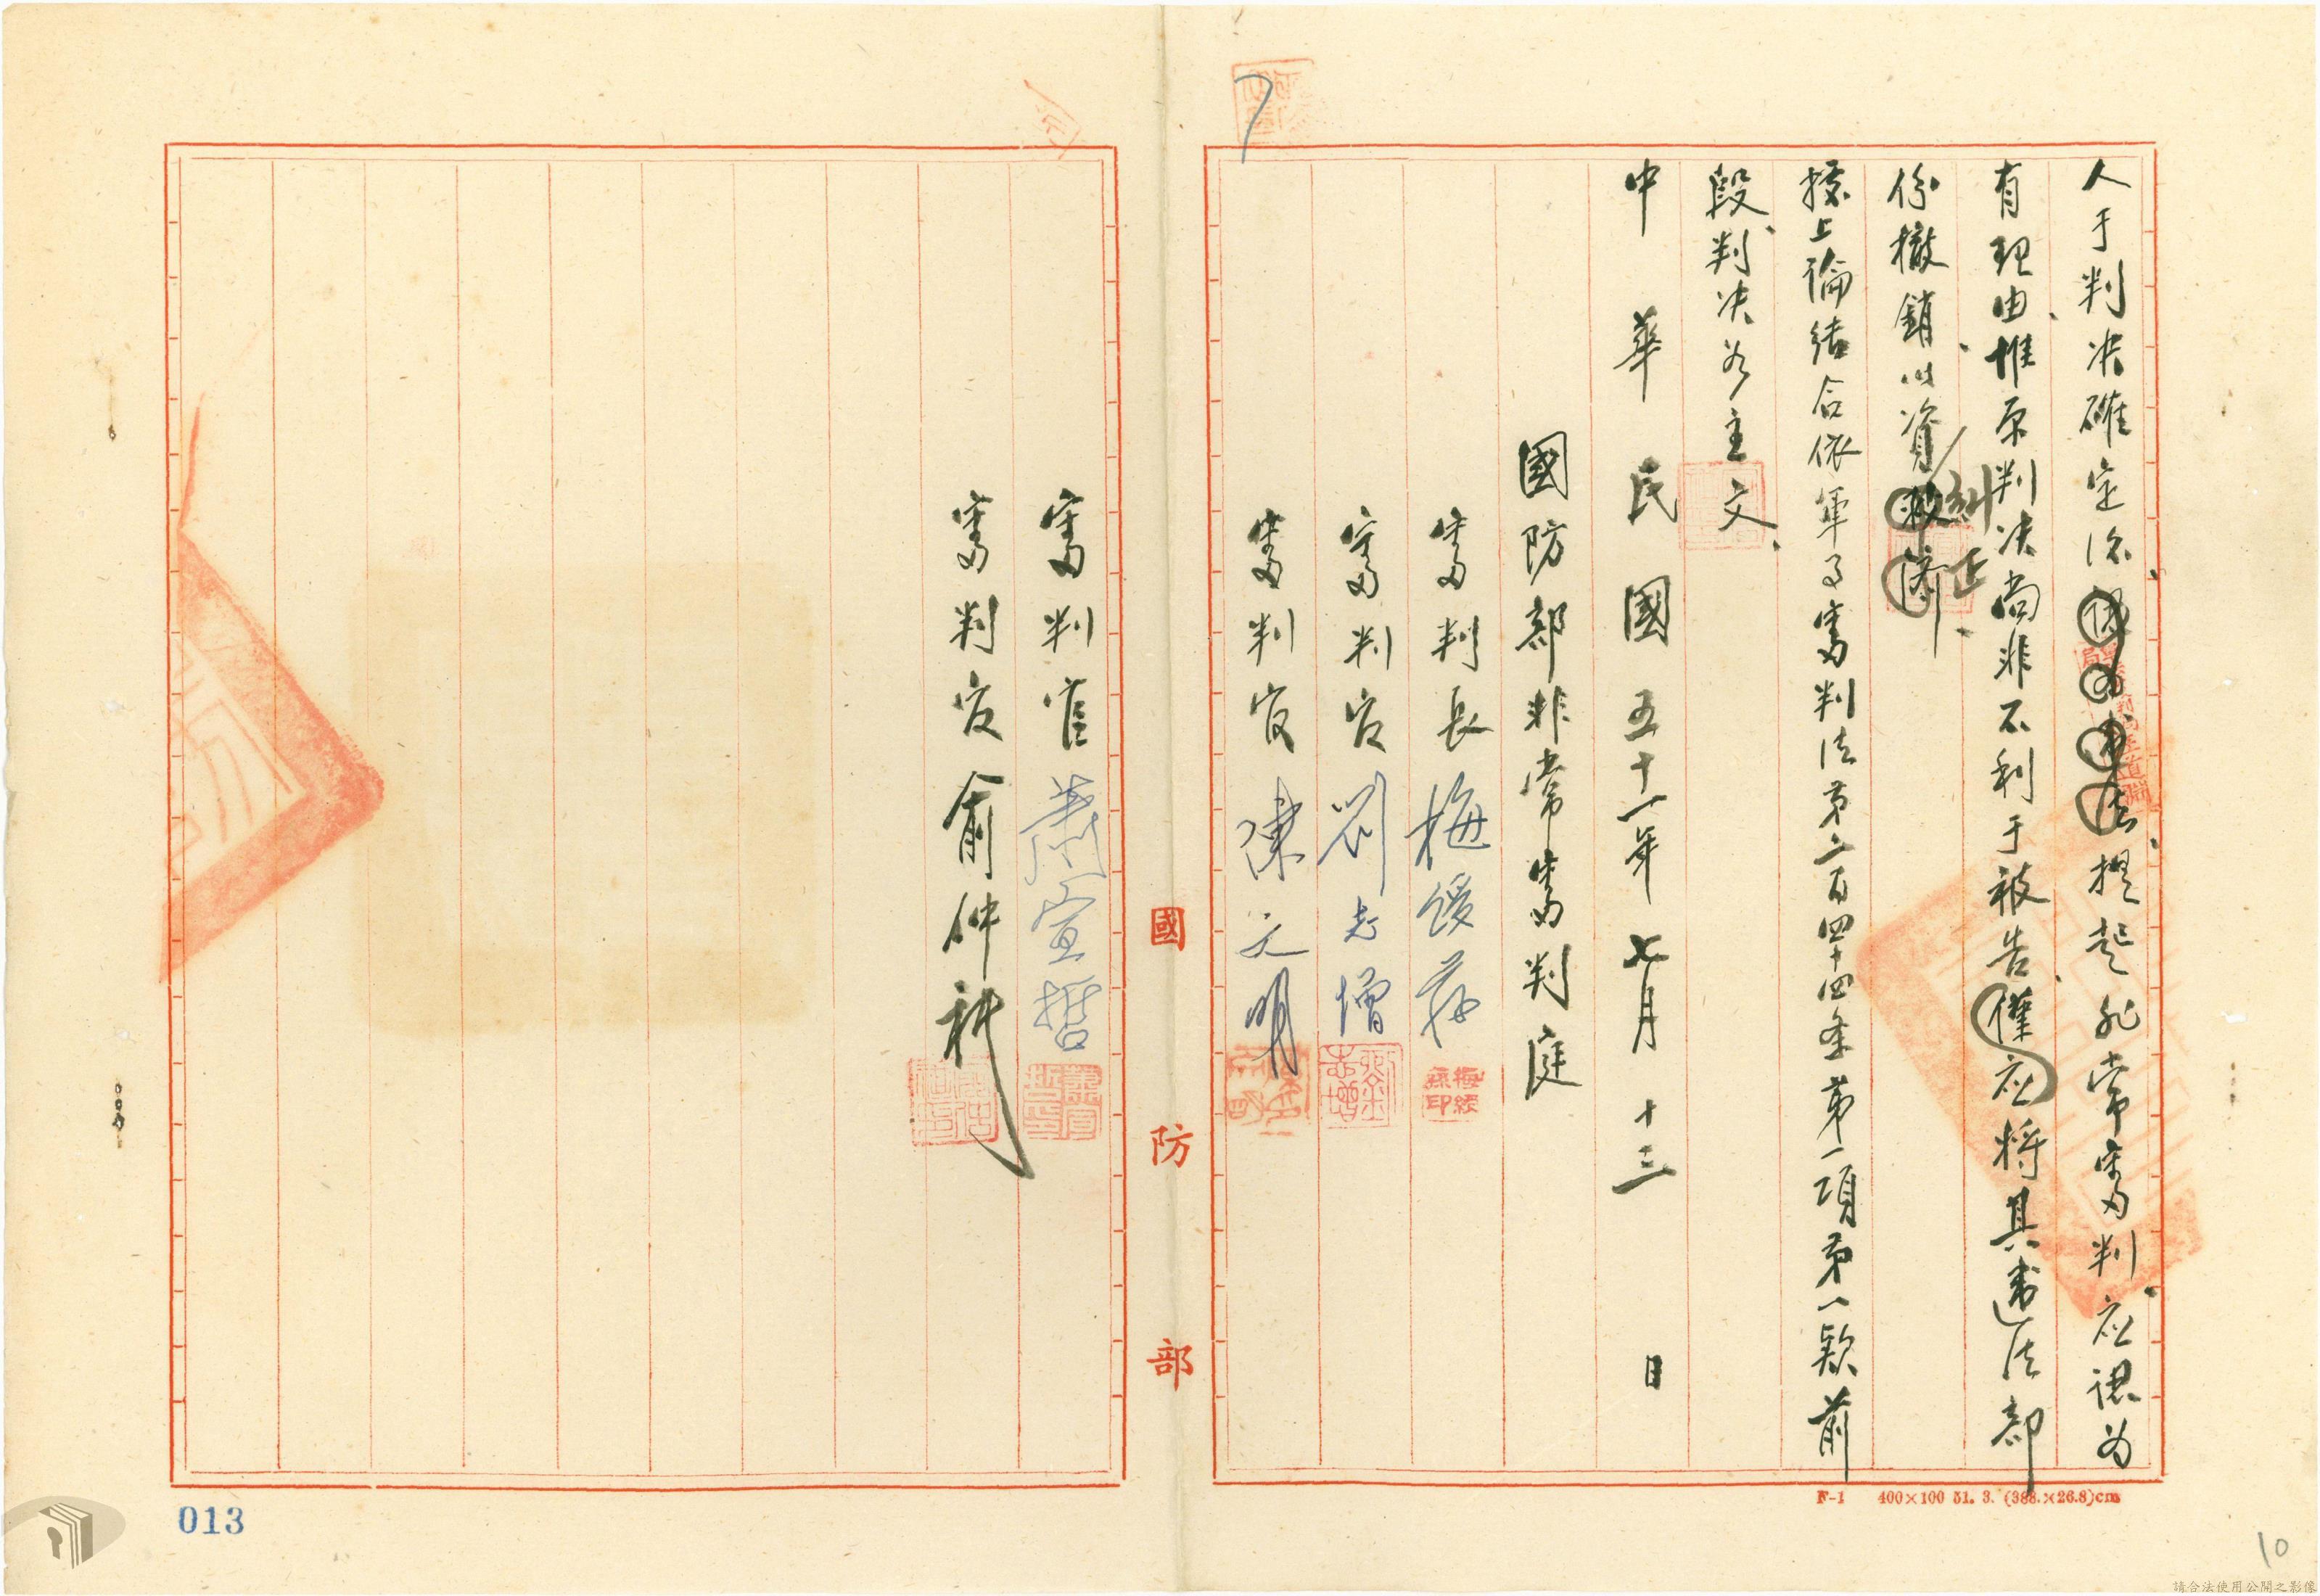 人于判决確定後、提起非常審判、应認為
有理由、惟原判决尚非不利于被告、僅应將其違法部
份撤銷、以資糾正、
據上論結合依軍事審判法第二百四十四条第一項第一款前
段、判决如主文、
中華民國五十一年七月十三日
國防部非常審判庭
審判長梅綬蓀
審判官劉志增
審判官陳文明
審判官蕭宣哲
審判官俞仲
國防部
F-1 400×100 51. 3. (388.×26.8)cm
013
10
請合法使用公開之影像